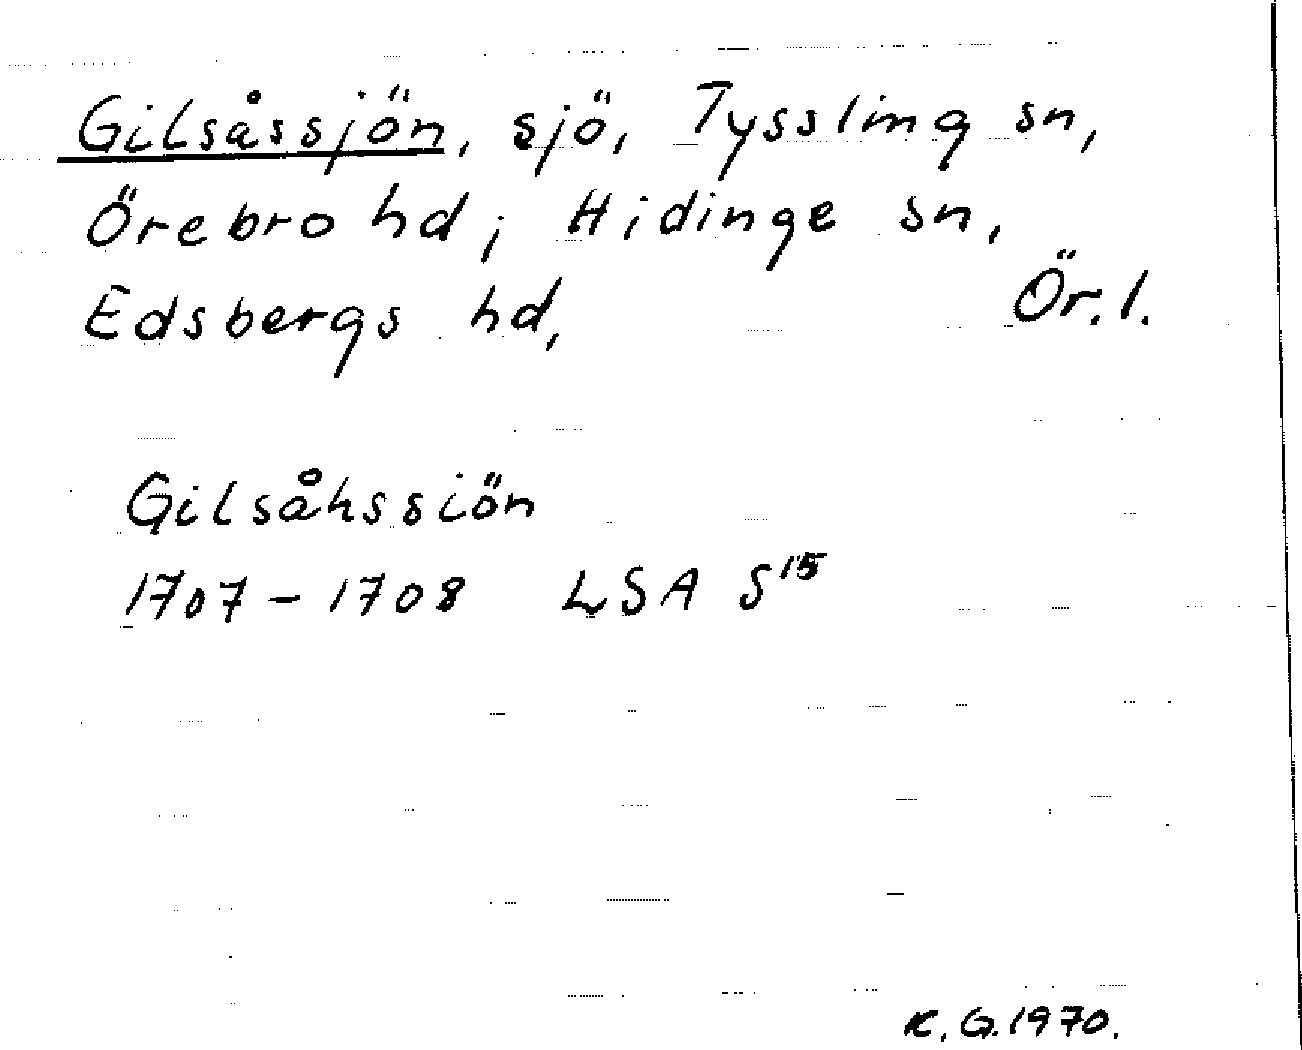 Gilsåssjön, sjö, Tyssling sn,
Örebro hd; Hidinge sn,
Edsbergs hd, Ör. l.
Gilsåhssiön
1707-1708 LSA S¹⁵
K. G. 1970.